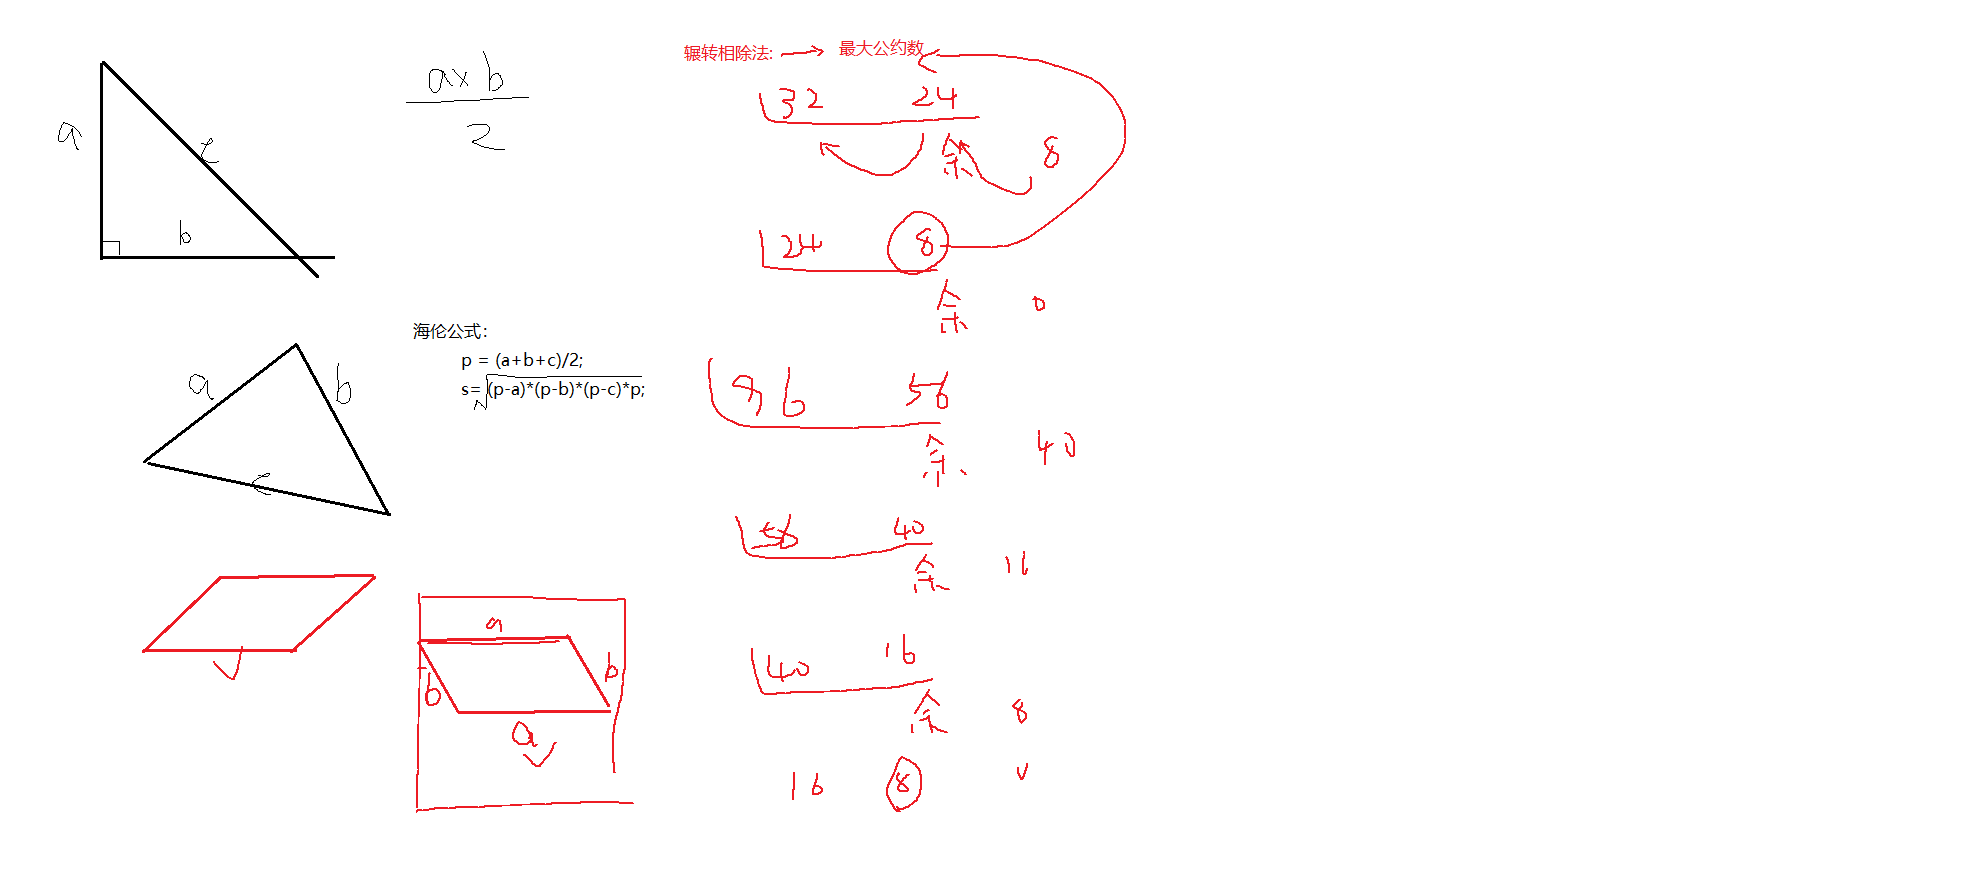 a
c
b
a×b
2
海伦公式：
p = (a+b+c)/2;
s=√(p-a)*(p-b)*(p-c)*p;
a
b
c
a
b
b
a
辗转相除法: → 最大公约数
32 24
余 8
24 8
余 0
96 56
余 40
56 40
余 16
40 16
余 8
16 8